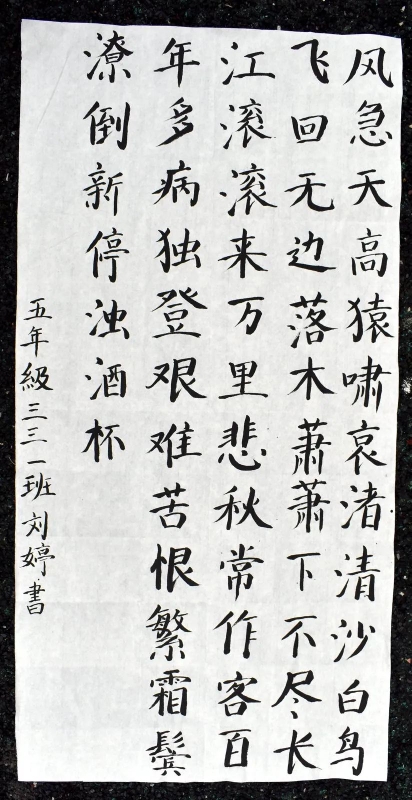 风急天高猿啸哀渚清沙白鸟
飞回无边落木萧萧下不尽长
江滚滚来万里悲秋常作客百
年多病独登艰难苦恨繁霜鬓
潦倒新停浊酒杯
五年级三三一班刘婷书